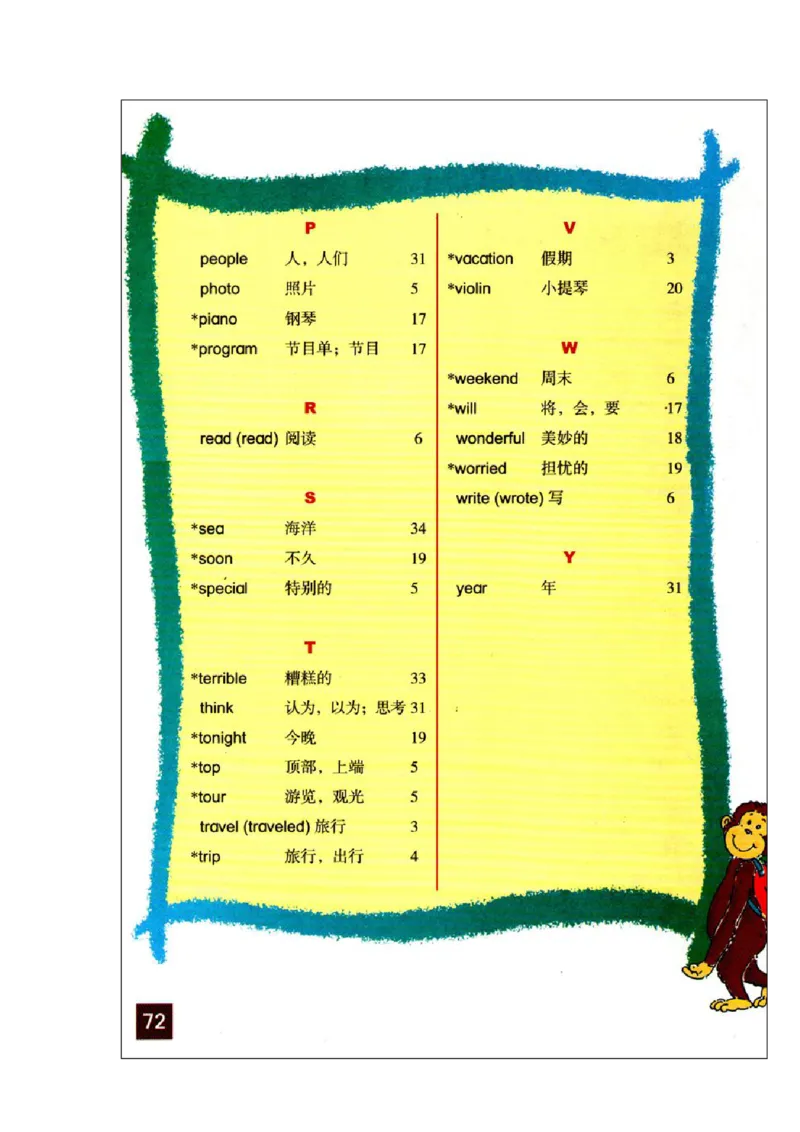 P
people 人，人们 31
photo 照片 5
*piano 钢琴 17
*program 节目单；节目 17
R
read (read) 阅读 6
S
*sea 海洋 34
*soon 不久 19
*special 特别的 5
T
*terrible 糟糕的 33
think 认为，以为；思考 31
*tonight 今晚 19
*top 顶部，上端 5
*tour 游览，观光 5
travel (traveled) 旅行 3
*trip 旅行，出行 4
V
*vacation 假期 3
*violin 小提琴 20
W
*weekend 周末 6
*will 将，会，要 17
wonderful 美妙的 18
*worried 担忧的 19
write (wrote) 写 6
Y
year 年 31
72